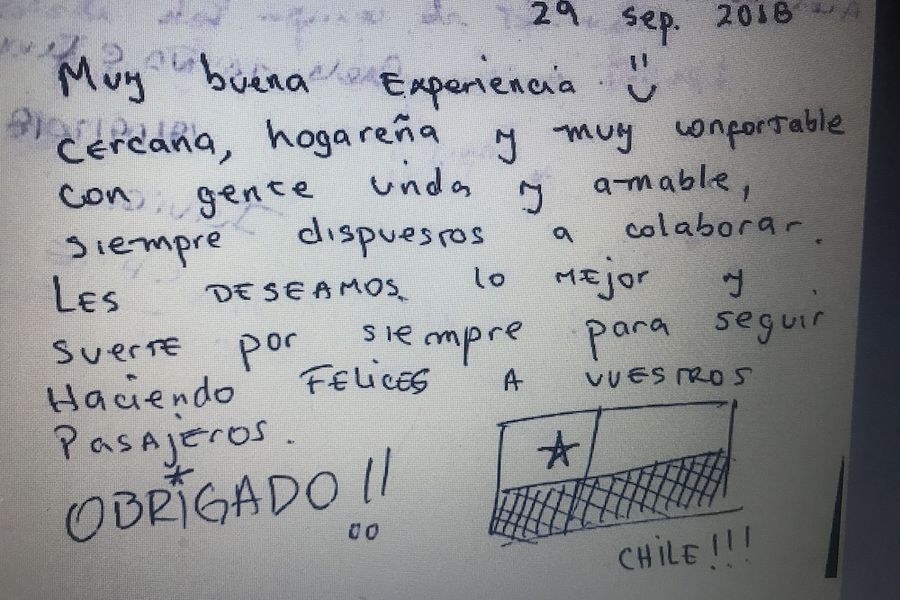 29 sep. 2018
Muy buena Experiencia
cercana, hogareña y muy confortable
con gente linda y amable,
siempre dispuestos a colaborar.
LES DESEAMOS lo MEjor y
suerte por siempre para seguir
Haciendo FELICES A VUESTROS
PasAjeros.
OBRIGADO!!
CHILE!!!